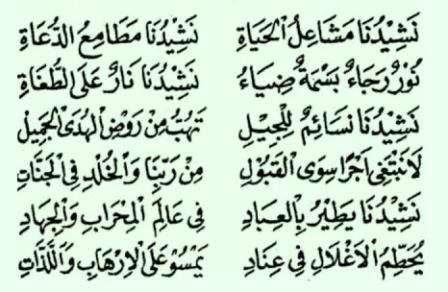 نَشِيْدُنَا مَشَاعِلُ الْحَيَاةِ نَشِيْدُنَا مَطَامِعُ الدُّعَاةِ
نُوْرٌ رَجَاءٌ بَسْمَةٌ ضِيَاءُ نَشِيْدُنَا نَارٌ عَلَى الطُّغَاةِ
نَشِيْدُنَا نَسَائِمٌ لِلْجِيْلِ تَهُبُّ مِنْ رَوْضِ الْهُدَى الْجَمِيْلِ
لَا نَبْتَغِي اَجْرًا سِوَى الْقَبُوْلِ مِنْ رَبِّنَا وَالْخُلْدِ فِي الْجَنَّاتِ
نَشِيْدُنَا يَطِيْرُ بِالْعِبَادِ فِي عَالَمِ الْمِحْرَابِ وَالْجِهَادِ
يُحَطِّمُ الْاَغْلَالَ فِي عِنَادِ يَسْمُوْ عَلَى الْاِرْهَابِ وَاللَّذَّاتِ